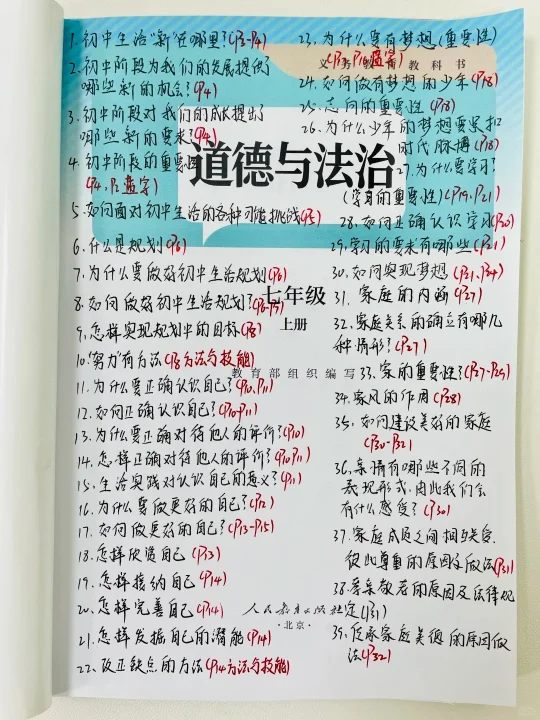 1. 初中生活"新"在哪里?(P3-P4)
2. 初中阶段为我们的发展提供
哪些新的机会?(P4)
3. 初中阶段对我们的成长提出了
哪些新的要求?(P4)
4. 初中阶段的重要性
(P4, P2蓝字)
5. 如何面对初中生活的各种可能挑战(P5)
6. 什么是规划(P6)
7. 为什么要做好初中生活规划(P6)
8. 如何做好初中生活规划?
9. 怎样实现规划中的目标(P8)
10."努力"有方法(P8方法与技能)
11. 为什么要正确认识自己?(P10, P11)
12. 如何正确认识自己?(P10-P11)
13. 为什么要正确对待他人的评价?(P10)
14. 怎样正确对待他人的评价?(P10P11)
15. 生活实践对认识自己的意义?(P11)
16. 为什么要做更好的自己?(P12)
17. 如何做更好的自己?(P13-P15)
18. 怎样欣赏自己(P13)
19. 怎样接纳自己(P14)
20. 怎样完善自己(P14)
21. 怎样发掘自己的潜能(P14)
22. 改正缺点的方法(P14方法与技能)
23. 为什么要有梦想(重要性)
(P17, P16蓝字)
24. 如何做有梦想的少年(P18)
25. 志向的重要性(P18)
26. 为什么少年的梦想要紧扣
时代脉搏(P18)
27. 为什么要学习?
(学习的重要性)(P19, P21)
28. 如何正确认识学习(P20)
29. 学习的要求有哪些(P21)
30. 如何实现梦想(P21, P24)
31. 家庭的内涵(P27)
32. 家庭关系的确立有哪几
种情形?(P27)
33. 家的重要性?(P27-P29)
34. 家风的作用(P28)
35. 如何建设美好的家庭
(P30-P32)
36. 亲情有哪些不同的
表现形式,因此我们会
有什么感受?(P30)
37. 家庭成员之间相互关爱、
彼此尊重的原因及做法(P31)
38. 孝亲敬老的原因及法律规
定(P31)
39. 传承家庭美德的原因做
法(P32)
义务教育教科书
道德与法治
七年级
上册
教育部组织编写
人民教育出版社
·北京·